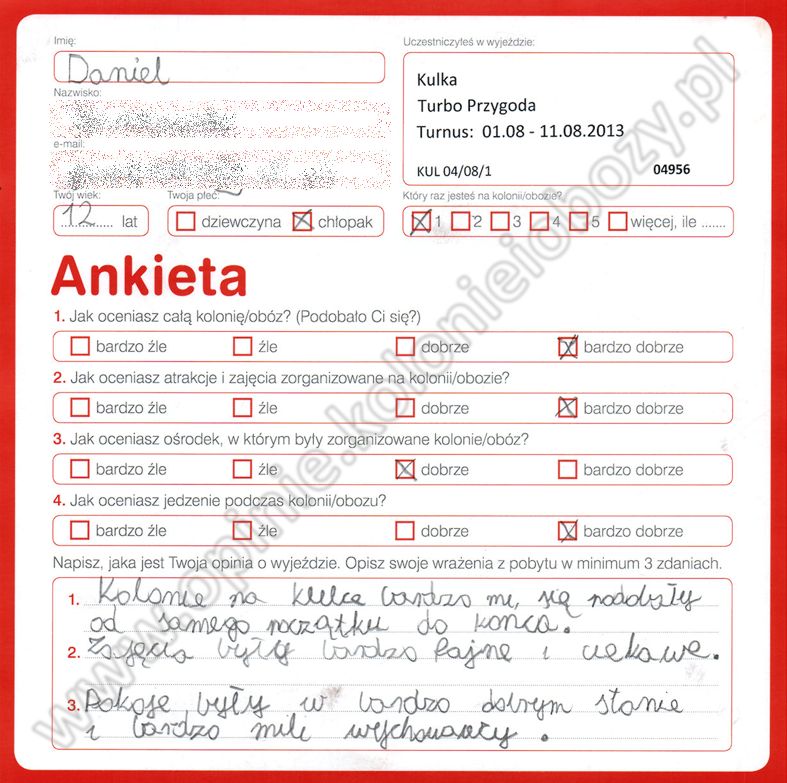 Imię:
Daniel
Nazwisko:
e-mail:
Twój wiek:
12 lat
Twoja płeć:
dziewczyna chłopak
Uczestniczyłeś w wyjeździe:
Kulka
Turbo Przygoda
Turnus: 01.08 - 11.08.2013
KUL 04/08/1 04956
Który raz jesteś na kolonii/obozie?
1 2 3 4 5 więcej, ile .......
Ankieta
1. Jak oceniasz całą kolonię/obóz? (Podobało Ci się?)
bardzo źle źle dobrze bardzo dobrze
2. Jak oceniasz atrakcje i zajęcia zorganizowane na kolonii/obozie?
bardzo źle źle dobrze bardzo dobrze
3. Jak oceniasz ośrodek, w którym były zorganizowane kolonie/obóz?
bardzo źle źle dobrze bardzo dobrze
4. Jak oceniasz jedzenie podczas kolonii/obozu?
bardzo źle źle dobrze bardzo dobrze
Napisz, jaka jest Twoja opinia o wyjeździe. Opisz swoje wrażenia z pobytu w minimum 3 zdaniach.
1. Kolonie na kulce bardzo mi, się podobały
od samego początku do końca.
2. Zajęcia były bardzo fajne i ciekawe.
3. Pokoje były w bardzo dobrym stanie
i bardzo mili wychowawcy.
www.opinie.kolonieiobozy.pl